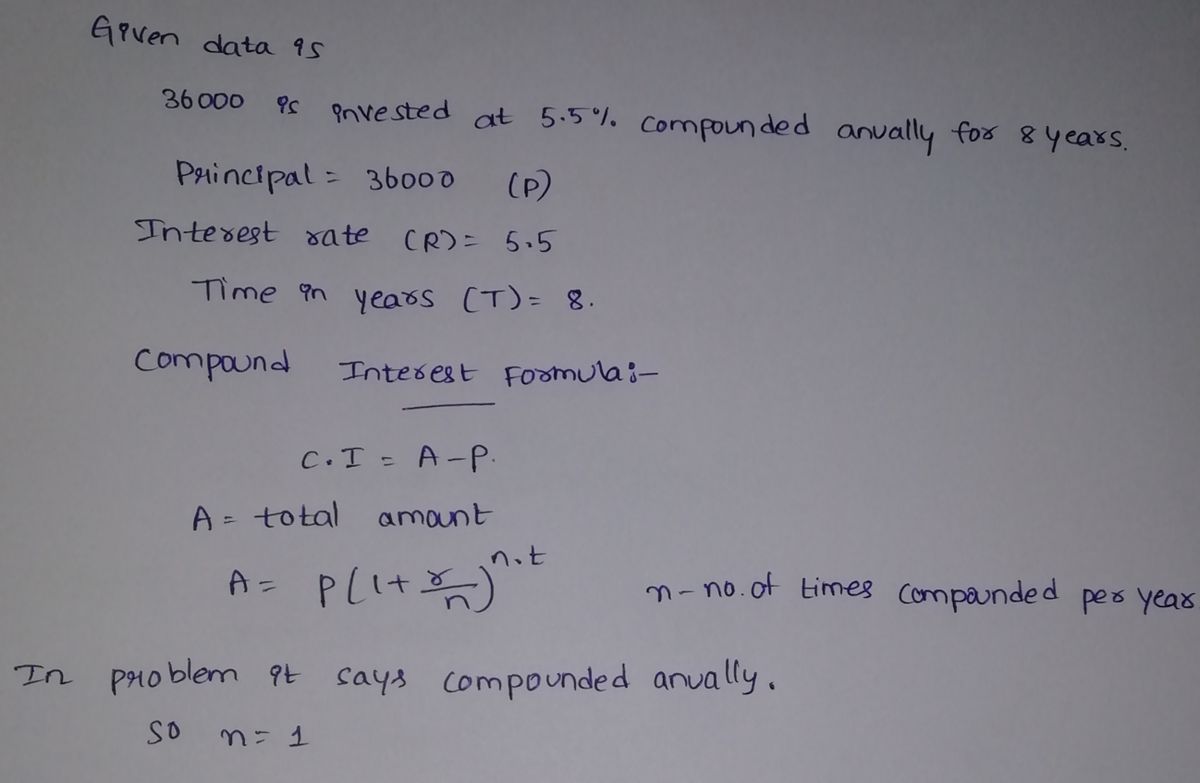 Given data is
36000 is invested at 5.5% compounded anually for 8 years.
Principal = 36000 (P)
Interest rate (R) = 5.5
Time in years (T) = 8.
Compound Interest Formula:-
C.I = A-P.
A = total amount
A = P(1+r/n)^n.t n-no. of times compounded per year
In problem it says compounded anually.
So n=1